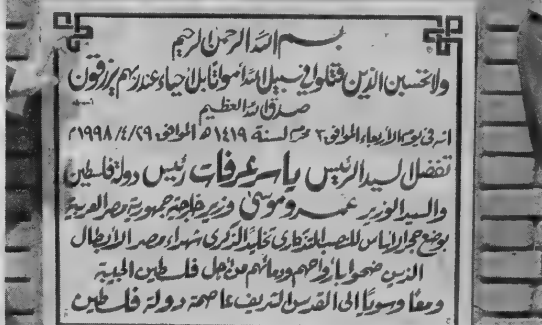 بسم الله الرحمن الرحيم
ولا تحسبن الذين قتلوا في سبيل الله أمواتا بل أحياء عند ربهم يرزقون
صدق الله العظيم
انه في يوم الأربعاء الموافق ٢ محرم لسنة ١٤١٩ هـ الموافق ١٩٩٨/٤/٢٩ م
تفضل السيد الرئيس ياسر عرفات رئيس دولة فلسطين
والسيد الوزير عمرو موسى وزير خارجية جمهورية مصر العربية
بوضع حجر الأساس للنصب التذكاري تخليدا لذكرى شهداء مصر الأبطال
الذين ضحوا بأرواحهم ودمائهم من أجل فلسطين الحبيبة
ومعا وسويا إلى القدس الشريف عاصمة دولة فلسطين